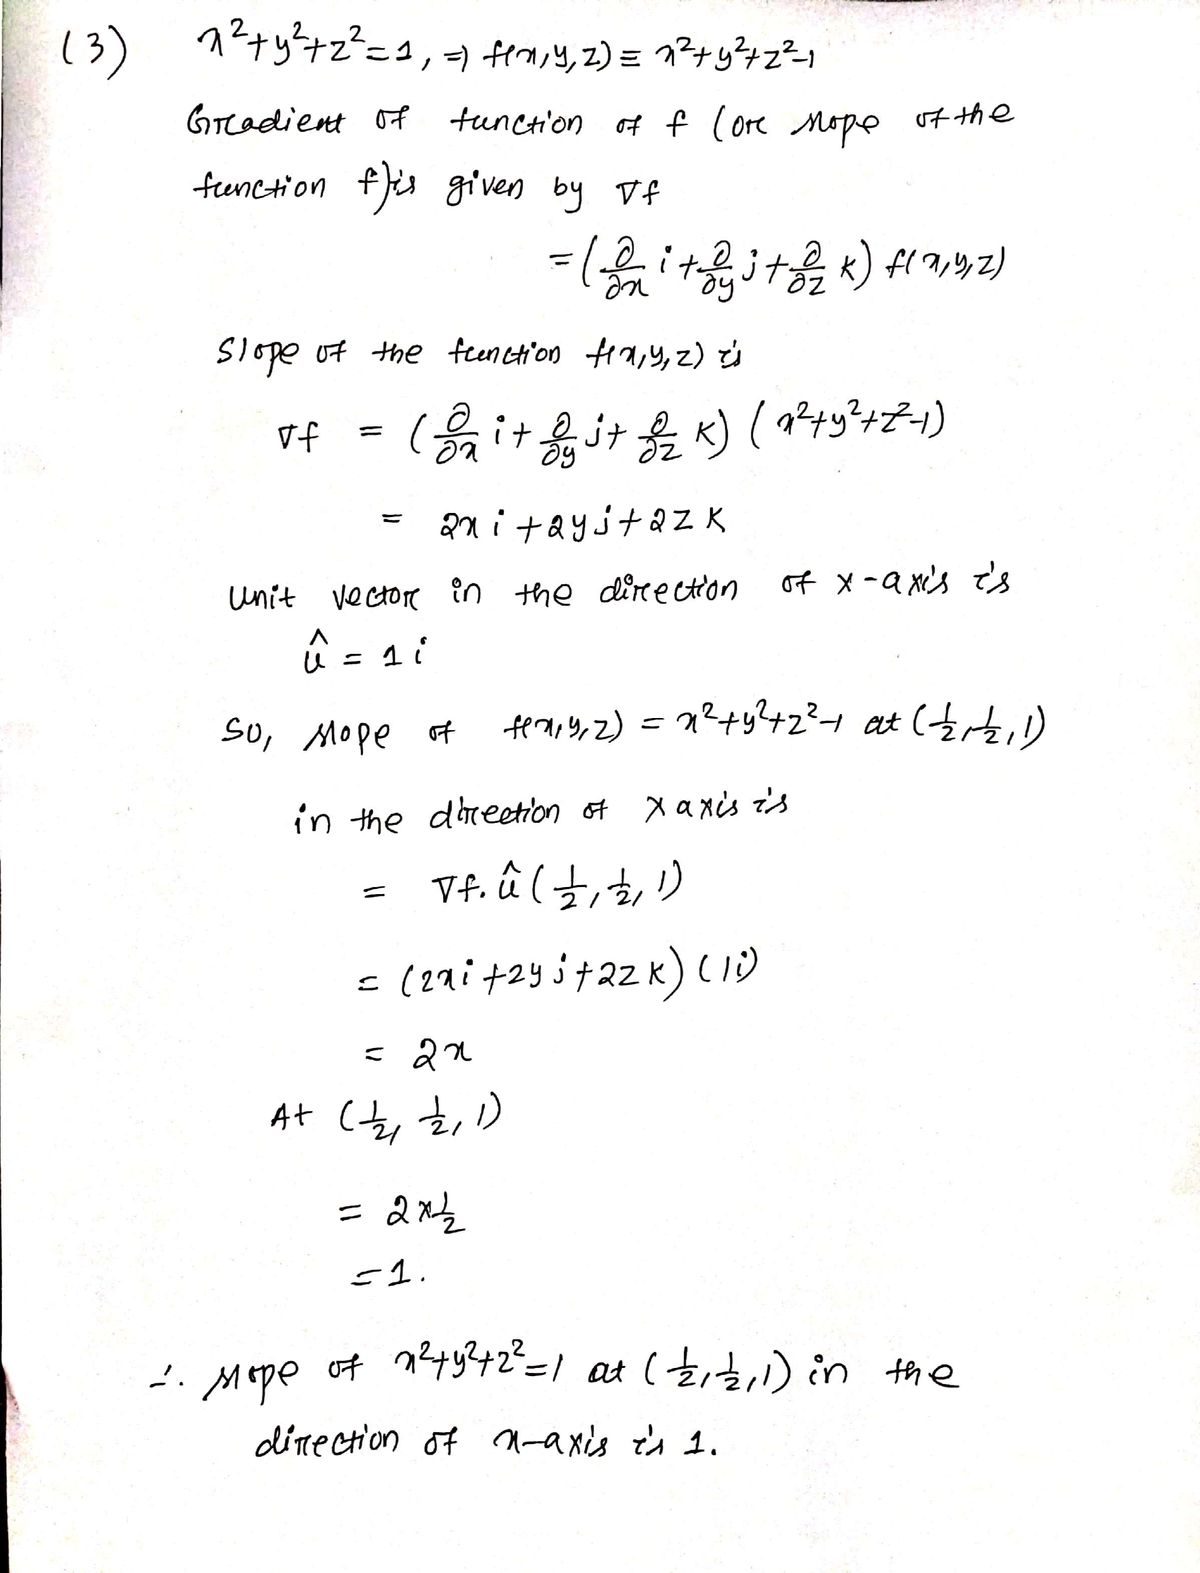 (3) x²+y²+z²=1, ⇒ f(x,y,z) ≡ x²+y²+z²-1
Gradient of function of f (or slope of the
function f) is given by ∇f
= (∂/∂x i + ∂/∂y j + ∂/∂z k) f(x,y,z)
Slope of the function f(x,y,z) is
∇f = (∂/∂x i + ∂/∂y j + ∂/∂z k) (x²+y²+z²-1)
= 2x i + 2y j + 2z k
Unit vector in the direction of x-axis is
û = 1 i
So, slope of f(x,y,z) = x²+y²+z²-1 at (1/2, 1/2, 1)
in the direction of x axis is
= ∇f. û (1/2, 1/2, 1)
= (2x i + 2y j + 2z k) (1i)
= 2x
At (1/2, 1/2, 1)
= 2×1/2
= 1.
∴ slope of x²+y²+z²=1 at (1/2, 1/2, 1) in the
direction of x-axis is 1.